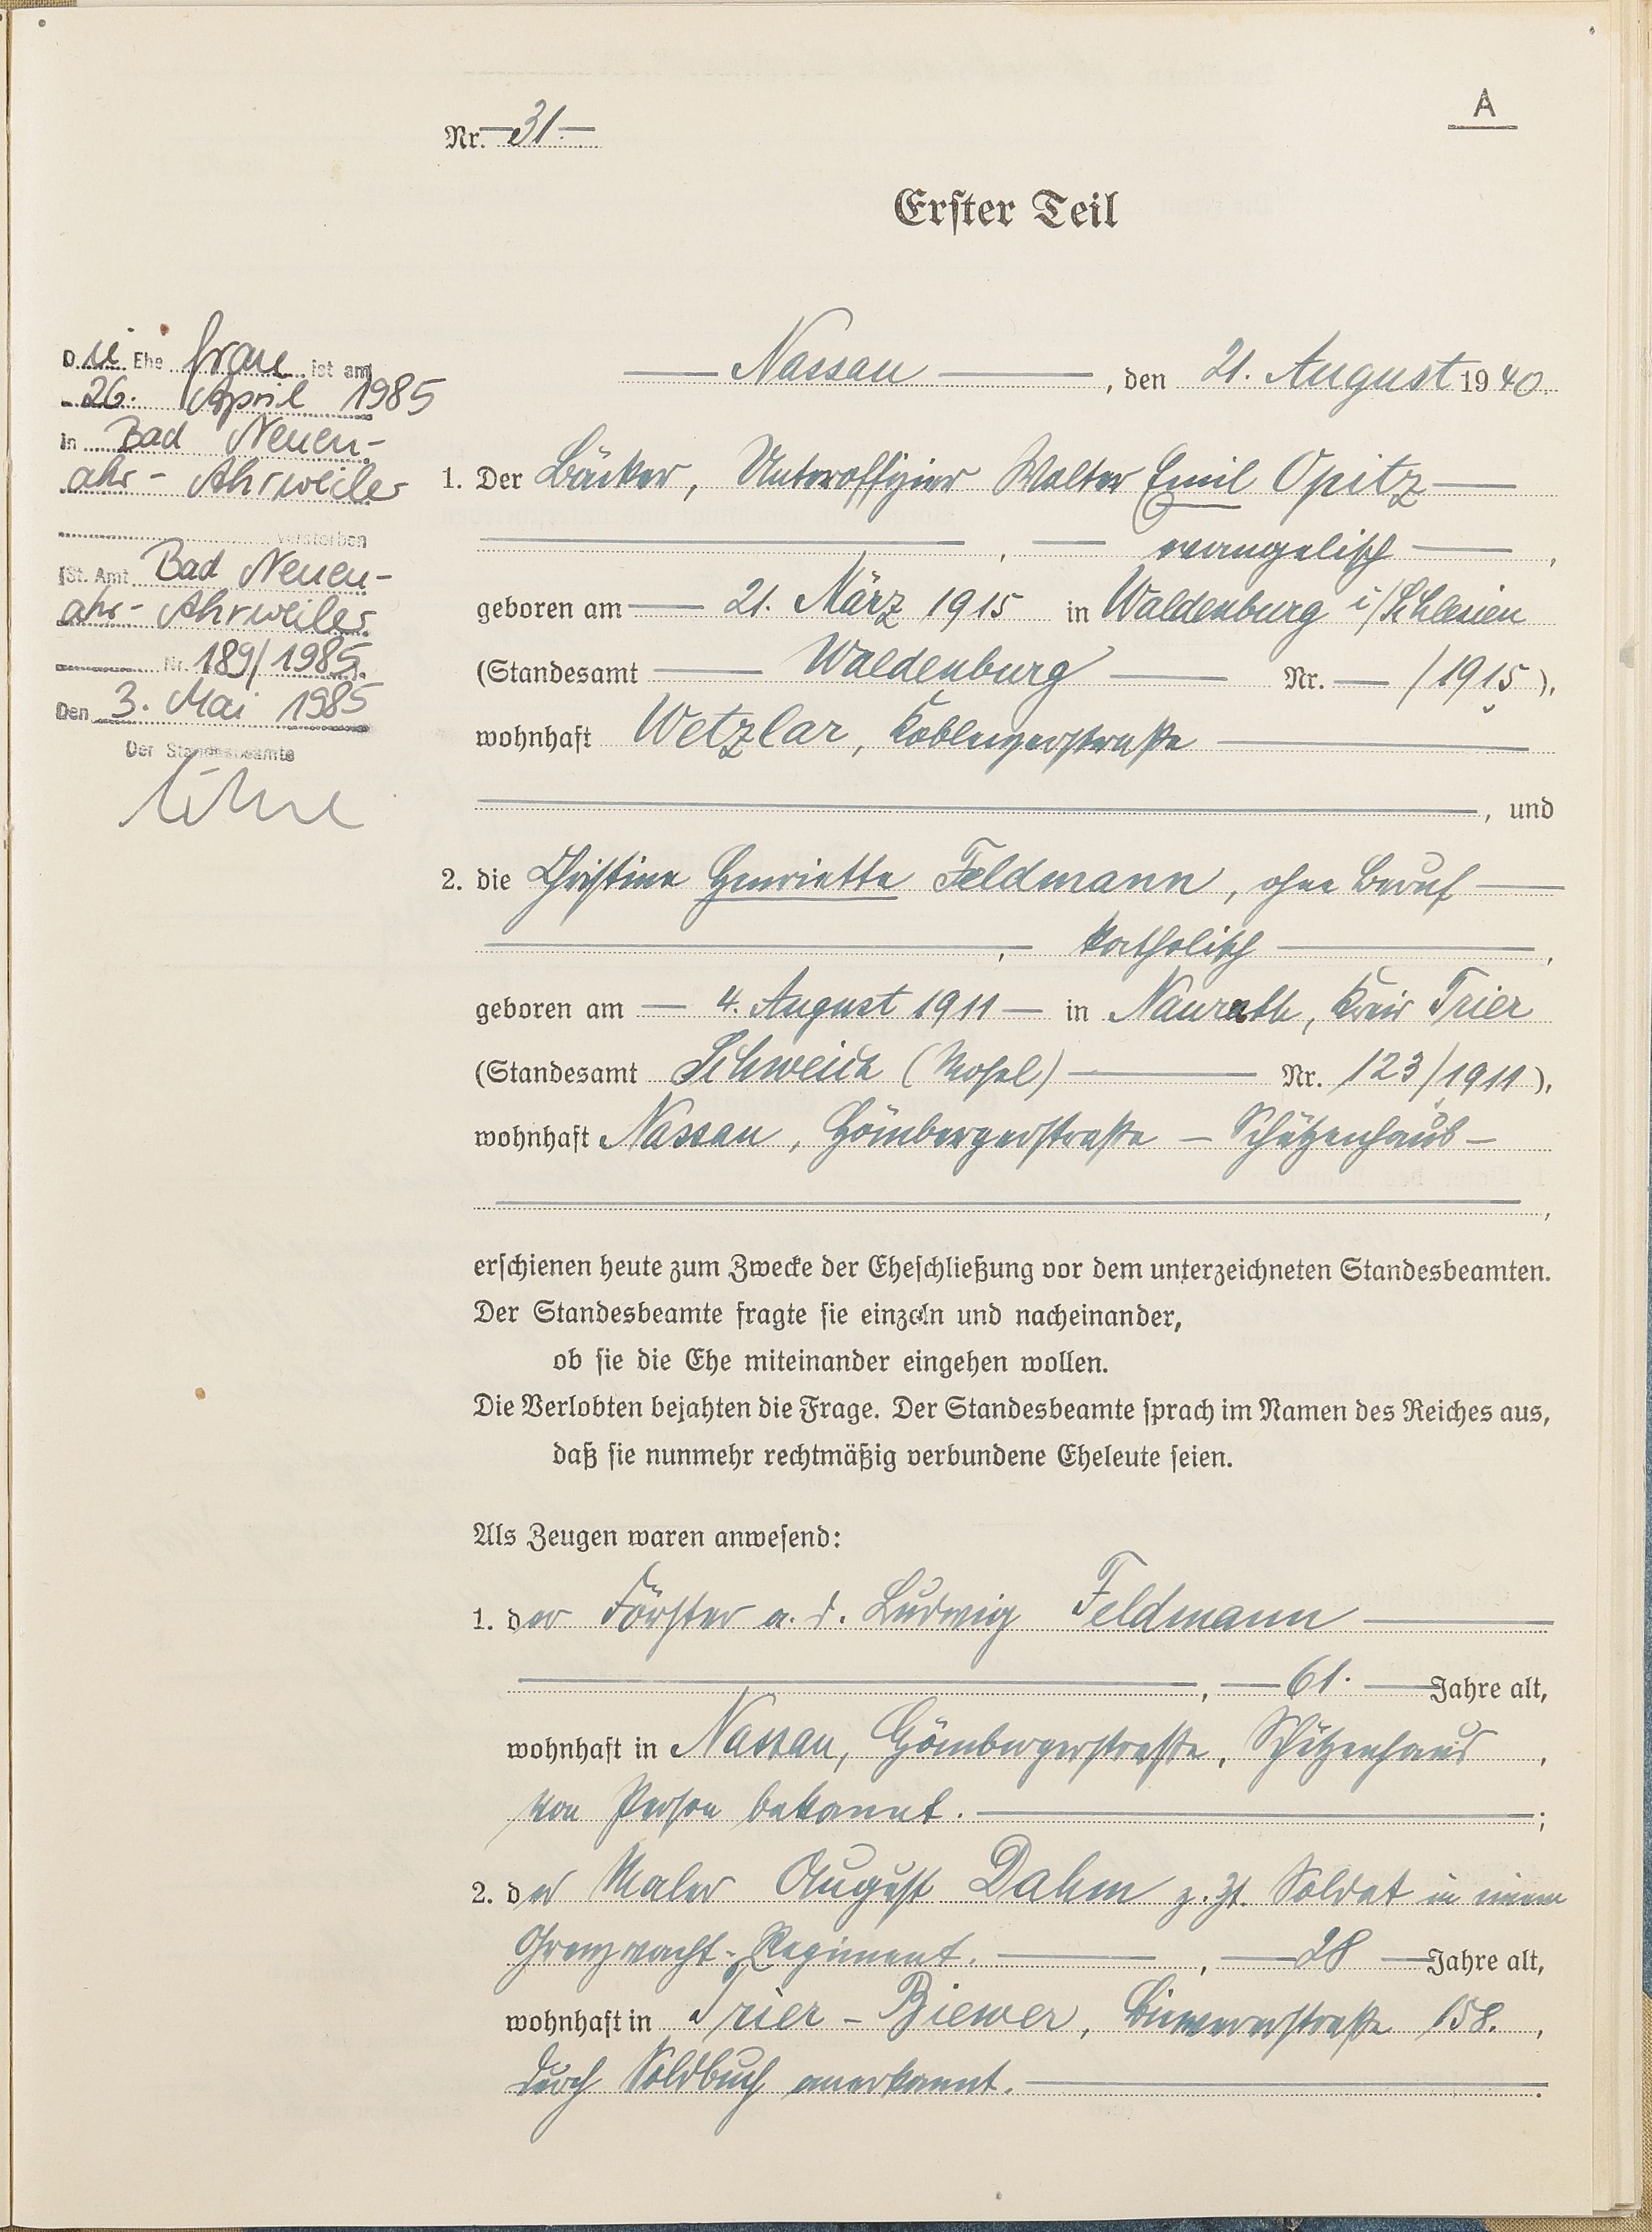 A
Nr. 31.
Erster Teil
Die Ehe frau ist am
26. April 1985
in Bad Neuen-
ahr - Ahrweiler
verstorben
(St. Amt Bad Neuen-
ahr - Ahrweiler
Nr. 189/1985).
Den 3. Mai 1985
Der Standesbeamte
Nassau, den 21. August 1940.
1. Der Bäcker, Unteroffizier Walter Emil Opitz
, evangelisch,
geboren am 21. März 1915 in Waldenburg i/Schlesien
(Standesamt Waldenburg Nr. — /1915),
wohnhaft Wetzlar, Koblenzerstraße
, und
2. die Christine Henriette Feldmann, ohne Beruf
, katholisch,
geboren am 4. August 1911 in Naurath, Kreis Trier
(Standesamt Schweich (Mosel) Nr. 123/1911),
wohnhaft Nassau, Hömbergerstraße – Schützenhaus –
,
erschienen heute zum Zwecke der Eheschließung vor dem unterzeichneten Standesbeamten.
Der Standesbeamte fragte sie einzeln und nacheinander,
ob sie die Ehe miteinander eingehen wollen.
Die Verlobten bejahten die Frage. Der Standesbeamte sprach im Namen des Reiches aus,
daß sie nunmehr rechtmäßig verbundene Eheleute seien.
Als Zeugen waren anwesend:
1. der Förster a. D. Ludwig Feldmann
, 61. Jahre alt,
wohnhaft in Nassau, Hömbergerstraße, Schützenhaus,
von Person bekannt. ;
2. der Maler August Dahm z. Zt. Soldat in einem
Grenzwacht-Regiment. , 28 Jahre alt,
wohnhaft in Trier - Biewer, Biewererstraße 158. ,
durch Soldbuch anerkannt. .